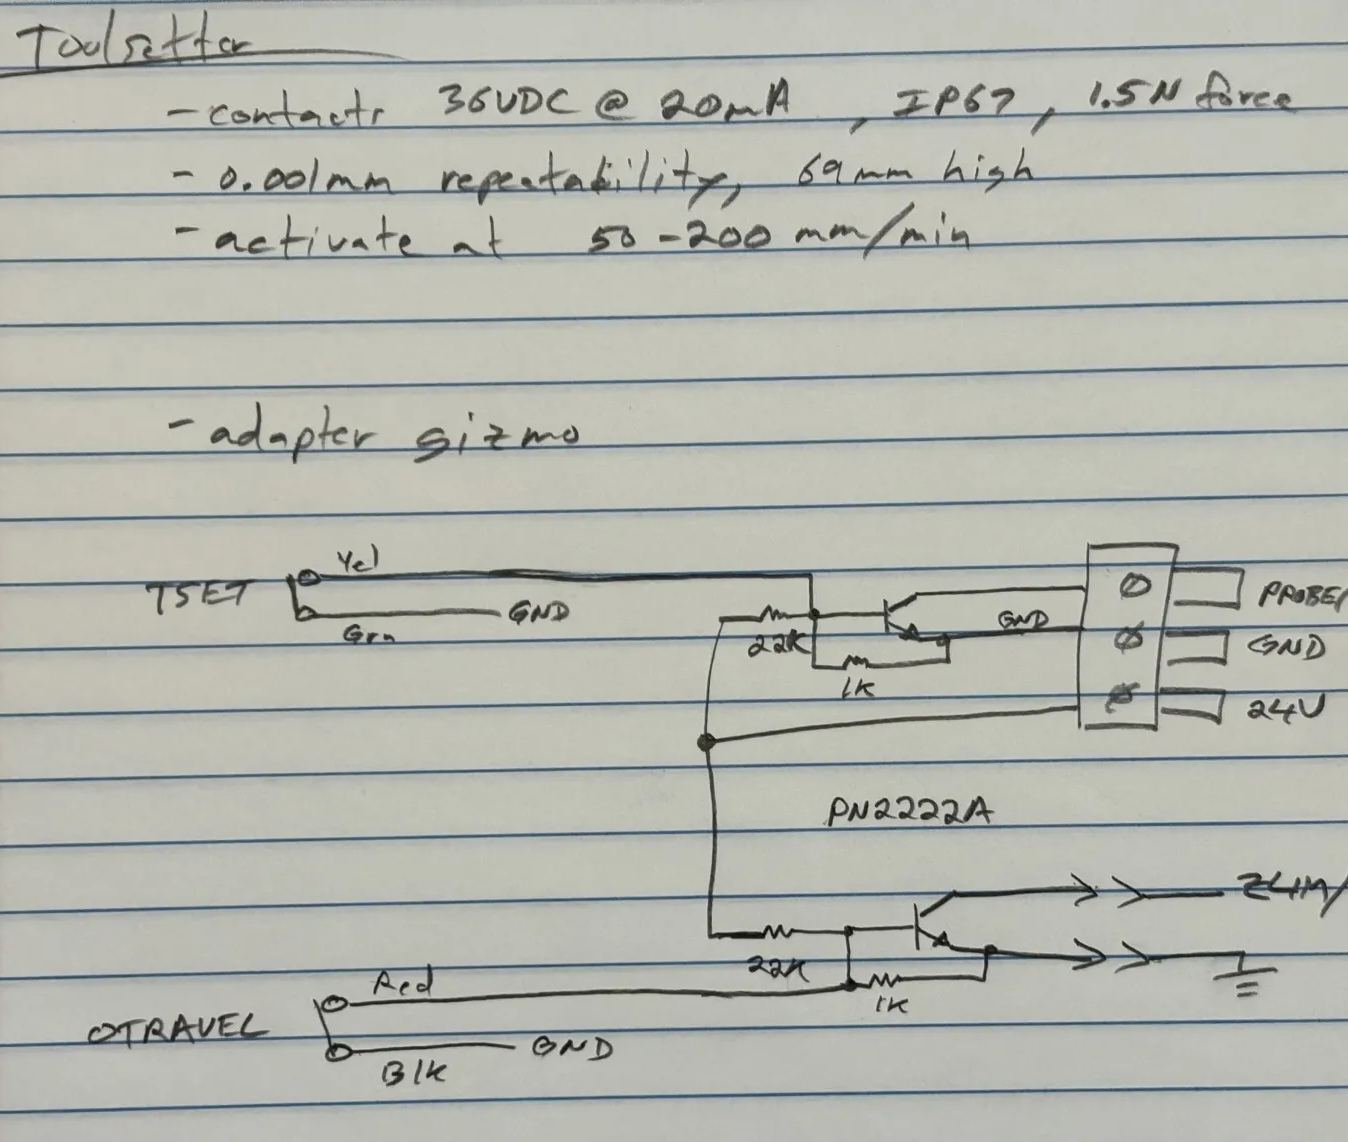 Toolsetter
- contacts 36VDC @ 20mA, IP67, 1.5N force
- 0.001mm repeatability, 69mm high
- activate at 50-200 mm/min
- adapter gizmo
TSET Yel
Grn GND
22K
1K
GND
PROBE/
GND
24V
PN2222A
22K
1K
ZLIM/
OTRAVEL Red
Blk GND